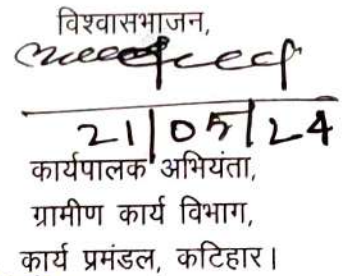 विश्वासभाजन,
21/05/24
कार्यपालक अभियंता,
ग्रामीण कार्य विभाग,
कार्य प्रमंडल, कटिहार।